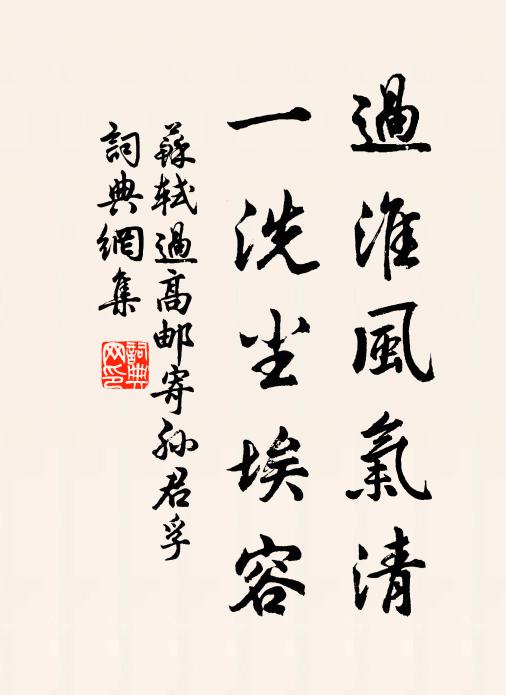 過淮風氣清
一洗尘埃容
蘇軾過高邮寄孙君孚
詞典網集
詞典
网印